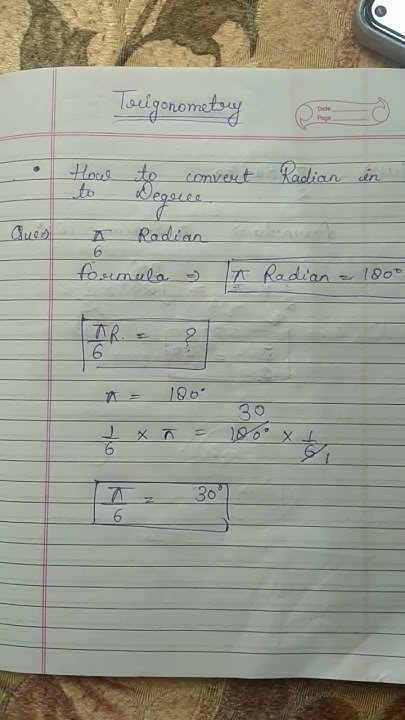 Trigonometry
Date
Page
• How to convert Radian in
to Degree.
Ques) π/6 Radian
formula ⇒ π Radian = 180°
π/6 R. = ?
π = 180°
30
1/6 × π = 180° × 1/6 1
π/6 = 30°